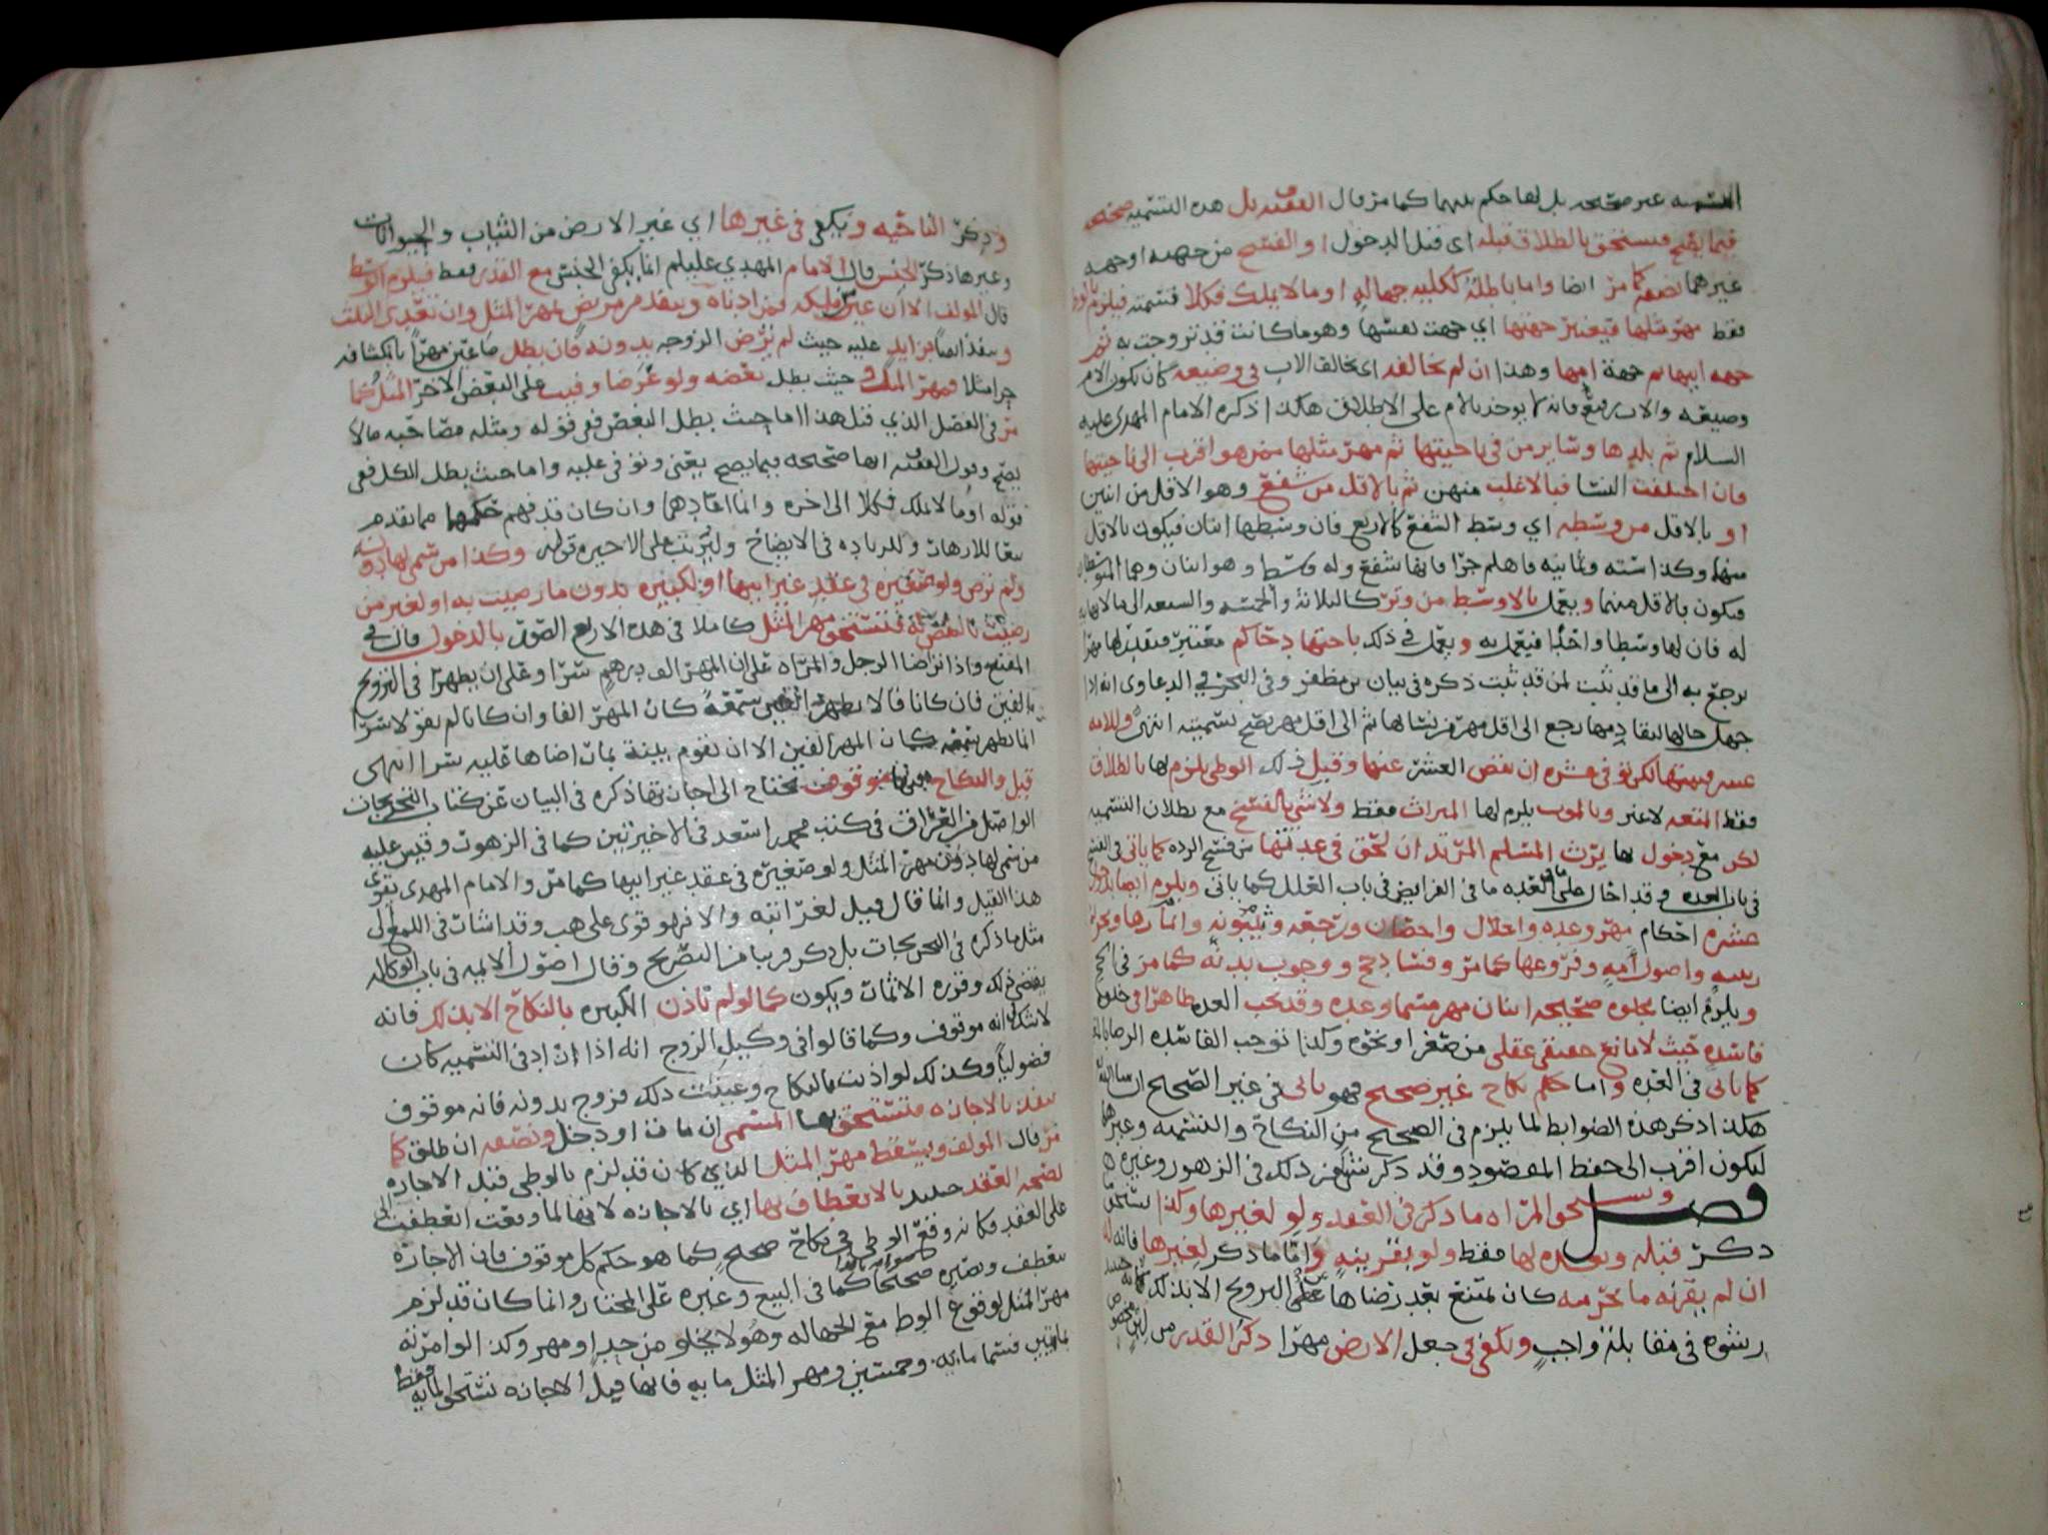 التسميه غير صحيحه بل لها حكم بينهما كما مر قال الفقيه بل هذه التسميه صحيحه
فيما يصح فيستحق بالطلاق قبله اي قبل الدخول او الفسخ من جهته او جهه
غيرهما نصفه كما مر ايضا واما باطله ككليه جهاله او ما لا يملك فكلا تسمته فيلزم بالوطى
فقط مهر مثلها فيعتبر جهتها اي جهت نفسها وهو ما كانت قد تزوجت به ثم
جهه ابيها ثم جهة امها وهذا ان لم تخالفه اى تخالف الاب في وضيعه كان تكون الام
وضيعه والاب رفيع فانه لا يوخذ بالام على الاطلاق هكذا ذكره الامام المهدي عليه
السلام ثم بلدها وساير من في ناحيتها ثم مهر مثلها ممن هو اقرب الى ناحيتها
فان اختلفت النسا فبالاغلب منهن ثم بالاقل من شفع وهو الاقل من اثنين
او بالاقل من وسطه اي وسط الشفع كالاربع فان وسطها اثنان فيكون بالاقل
منهما وكذا سته وثمانيه فا هلم جرا فانها شفع وله وسط وهو اثنان وهما المتوسطان
فيكون بالاقل منهما ويعمل بالاوسط من وتر كالثلاثة والخمسه والسبعه الى ما لا نهايه
له فان لها وسطا واحدا فيعمل به ويعمل في ذلك باجتهاد حاكم معتبر فيثبت لها مهرا
يرجع به الى ما قد ثبت لمن قد ثبت ذكره في بيان بن مظفر وفي البحر في الدعاوى انه اذا
جهل حالها يرجع الى اقل مهر من نسائها ثم الى اقل مهر يصح تسميته انتهى وللامه
عشر قيمتها لكن لو في عشره ان نقص العشر عنها وقيل في ذلك الوطى يلزم لها بالطلاق
فقط المتعه لا غير وبالموت يلزم لها الميراث فقط ولا شي بالفسخ مع بطلان التسميه
لكن مع دخول لها يرث المسلم المرتد ان لحق في عدتها من فسخ الرده كما ياتي في الفسخ
في باب العده وقد احال على ما في العده ما في الفرايض في باب العلل كما ياتي ويلزم ايضا بالدخول
عشره احكام مهر وعده واحلال واحصان ورجعه وثيبونه
ربيبه واصول امه وفروعها كما مر وفساد حج ووجوب بدنه كما مر في الحج
ويلزم ايضا بخلوه صحيحه اثنان مهر مسما وعده وقد تجب العده ظاهرا في خلوه
فاسده حيث لا مانع حقيقي عقلى من صغر او نحوه وكذا توجب الفاسده الرضا بالعقد
كما ياتي في العده واما حكم نكاح غير صحيح فهو ياتى في غير الصحيح ان شا الله
هكذا ذكر هذه الضوابط لما يلزم في الصحيح من النكاح والتسميه وغيرها
ليكون اقرب الى حفظ المقصود وقد ذكر شي من ذلك في الزهور وغيره
فصل وتستحق المراه ما ذكر في العقد ولو لغيرها وكذا تستحق
ذكر قبله وبعده لها فقط ولو بقرينه واما ما ذكر لغيرها فانه له
ان لم يقرنه ما يحرمه كان تمتنع بعد رضاها على التزويج الا بذلك
رشوه في مقابلة واجب ويكفي في جعل الارض مهرا ذكر القدر
وذكر الناحيه ويكفي في غيرها اي غير الارض من الثياب والحيوانات
وغيرها ذكر الجنس قال الامام المهدي عليلم انما يكفى الجنس مع القدر فقط فيلزم الوسط
قال المولف الا ان عين ملكه فمن ادناه وينفذ من مريض لمهر المثل وان تعدى الثلث
وينفذ ايضا من زايد عليه حيث لم ترض الزوجه بدونه فان بطل ما عين مهرا بانكشافه
حرا مثلا فمهر المثل وحيث بطل بعضه ولو غرضا وفيت على البعض الاخر المثل كما
مر في الفصل الذي قبل هذا اما حيث بطل البعض ففي قوله ومثله مصاحبه ما لا
يصح وقول الفقيه انها صحيحه فيما يصح يعني وتوفى عليه واما حيث بطل الكل ففي
قوله او ما لا يملك فكلا الى اخره وانما اعادهما وان كان قد فهم حكمها مما تقدم
تبعا للازهار وللزياده في الايضاح وليرتب على الاخيره قوله وكذا من سمى لها دونه
ولم ترض ولو صغيره في عقد غير ابيها او لكبيره بدون ما رضيت به او لغير من
رضيت بالنقص له فتستحق مهر المثل كاملا في هذه الاربع الصور بالدخول قال في
المقنع واذا تراضا الرجل والمراه على ان المهر الف درهم سرا وعلى ان يظهرا في التزويج
بالفين فان كانا قالا نظهر الفين سمعة كان المهر الفا وان كانا لم يقولا سرا
انما نظهر سمعه كان المهر الفين الا ان تقوم بينة بمات اضاها عليه سرا انتهى
قيل والنكاح فيها موقوف تحتاج الى اجازتها ذكره في البيان عن كتاب التخريجات
الواصل من العراق في كتب محمد بن اسعد في الاخيرتين كما في الزهور وقيس عليه
من سمى لها دون مهر المثل ولو صغيره في عقد غير ابيها كما مر والامام المهدي يقوي
هذا القيل وانما قال قيل لغرابته والا فهو قوي على هب وقد اشار في اللمع الى
مثل ما ذكره في التخريجات بل ذكر قريبا من التصريح وقال اصول الايمه في باب الوكاله
يقضي بذلك وقرره الاثمات ويكون كما لو لم تاذن الكبيره بالنكاح الا بذلك فانه
لا شك انه موقوف وكما قالوا في وكيل الزوج انه اذا زاد في التسميه كان
فضوليا وكذلك لو اذنت بالنكاح وعينت ذلك فزوج بدونه فانه موقوف
ينفذ بالاجازه فتستحق بها المسمى ان مات او دخل ونصفه ان طلق كما
مر قال المولف ويسقط مهر المثل الذي كان قد لزم بالوطى قبل الاجازه
لصحه العقد حينيذ بالانعطاف بها اي بالاجازه لانها لما وقعت انعطفت الى
على العقد فكانه وقع الوطى في نكاح صحيح كما هو حكم كل موقوف فان الاجازه
تنعطف وتصيره صحيحا كما في البيع وغيره على المختار وانما كان قد لزم
مهر المثل لوقوع الوطى مع الجهاله وهو لا يخلو من حد او مهر وكذا لو امرته
بمايتين فسما مايه وخمسين ومهر المثل مايه فانها قبل الاجازه تستحق المايه فقط